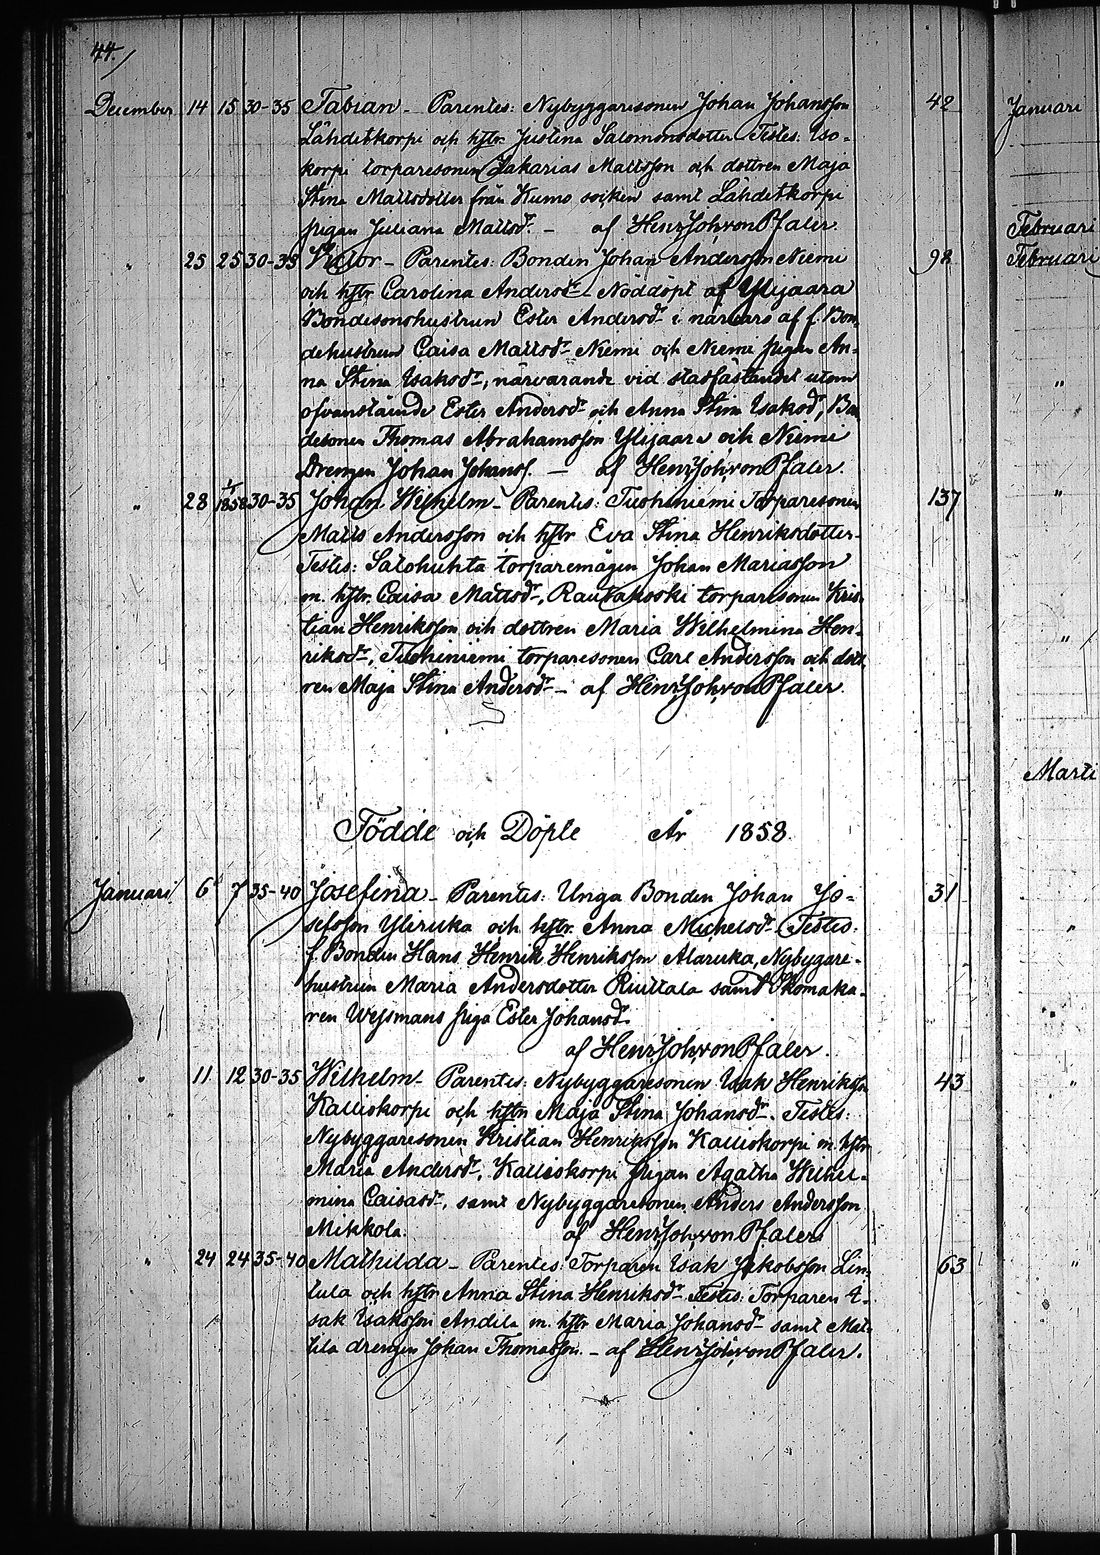 44./
December 14 15 30-35 Fabian - Parentes: Nybyggaresonen Johan Johansson 42
Lähdetkorpi och hstr Justina Salomonsdotter Testes: Iso-
korpi torparesonen Zakarias Mattsson och dottren Maja
Stina Mattsdotter från Kumo socken samt Lähdetkorpi
pigan Juliana Mattsdr. - af Henr. Joh. von Pfaler.
" 25 25 30-35 Victor - Parentes: Bonden Johan Andersson Niemi 98
och hstr Carolina Andersdr - Nöddöpt af Ylijaara
Bondesonshustrun Ester Andersdr i närvaro af f. Bon-
dehustrun Caisa Mattsdr Niemi och Niemi pigan An-
na Stina Isaksdr, närvarande vid stadfästandet utom
ofvanstående Ester Andersdr och Anna Stina Isaksdr, Bon-
desonen Thomas Abrahamsson Ylijaara och Niemi
Drengen Johan Johanss. - af Henr. Joh. von Pfaler.
" 28 1/1 1858 30-35 Johan Wilhelm - Parentes: Tuohiniemi Torparesonen 137
Matts Andersson och hstr Eva Stina Henriksdotter -
Testes: Salohuhta torparemågen Johan Mariasson
m. hstr Caisa Mattsdr, Rautakoski torparesonen Kris-
tian Henriksson och dottren Maria Wilhelmina Hen-
riksdr, Tuohiniemi torparesonen Carl Andersson och dott-
ren Maja Stina Andersdr - af Henr. Joh. von Pfaler.
Födde och Döpte År 1858.
Januari 6 7 35-40 Josefina - Parentes: Unga Bonden Johan Jo- 31
sefsson Yliruka och hstr Anna Michelsdr Testes:
f. Bonden Hans Henrik Henriksson Alaruka, Nybygare-
hustrun Maria Andersdotter Riuttala samt Skomaka-
ren Weismans piga Ester Johansdr.
af Henr. Joh. von Pfaler.
" 11 12 30-35 Wilhelm - Parentes: Nybyggaresonen Isak Henriksson 43
Kalliokorpi och hstr Maja Stina Johansdr. Testes:
Nybyggaresonen Kristian Henriksson Kalliokorpi m. hstr
Maria Andersdr, Kalliokorpi pigan Agatha Wilhel-
mina Caisasdr, samt Nybyggaresonen Anders Andersson
Mikkola. af Henr. Joh. von Pfaler.
" 24 24 35-40 Mathilda - Parentes: Torparen Isak Jakobsson Lin- 63
tula och hstr Anna Stina Henriksdr Testes: Torparen I-
sak Isaksson Andila m. hstr Maria Johansdr samt Mat-
tila drengen Johan Thomasson. - af Henr. Joh. von Pfaler.
Januari
Februari
Februari
"
"
"
Marti
"
"
"